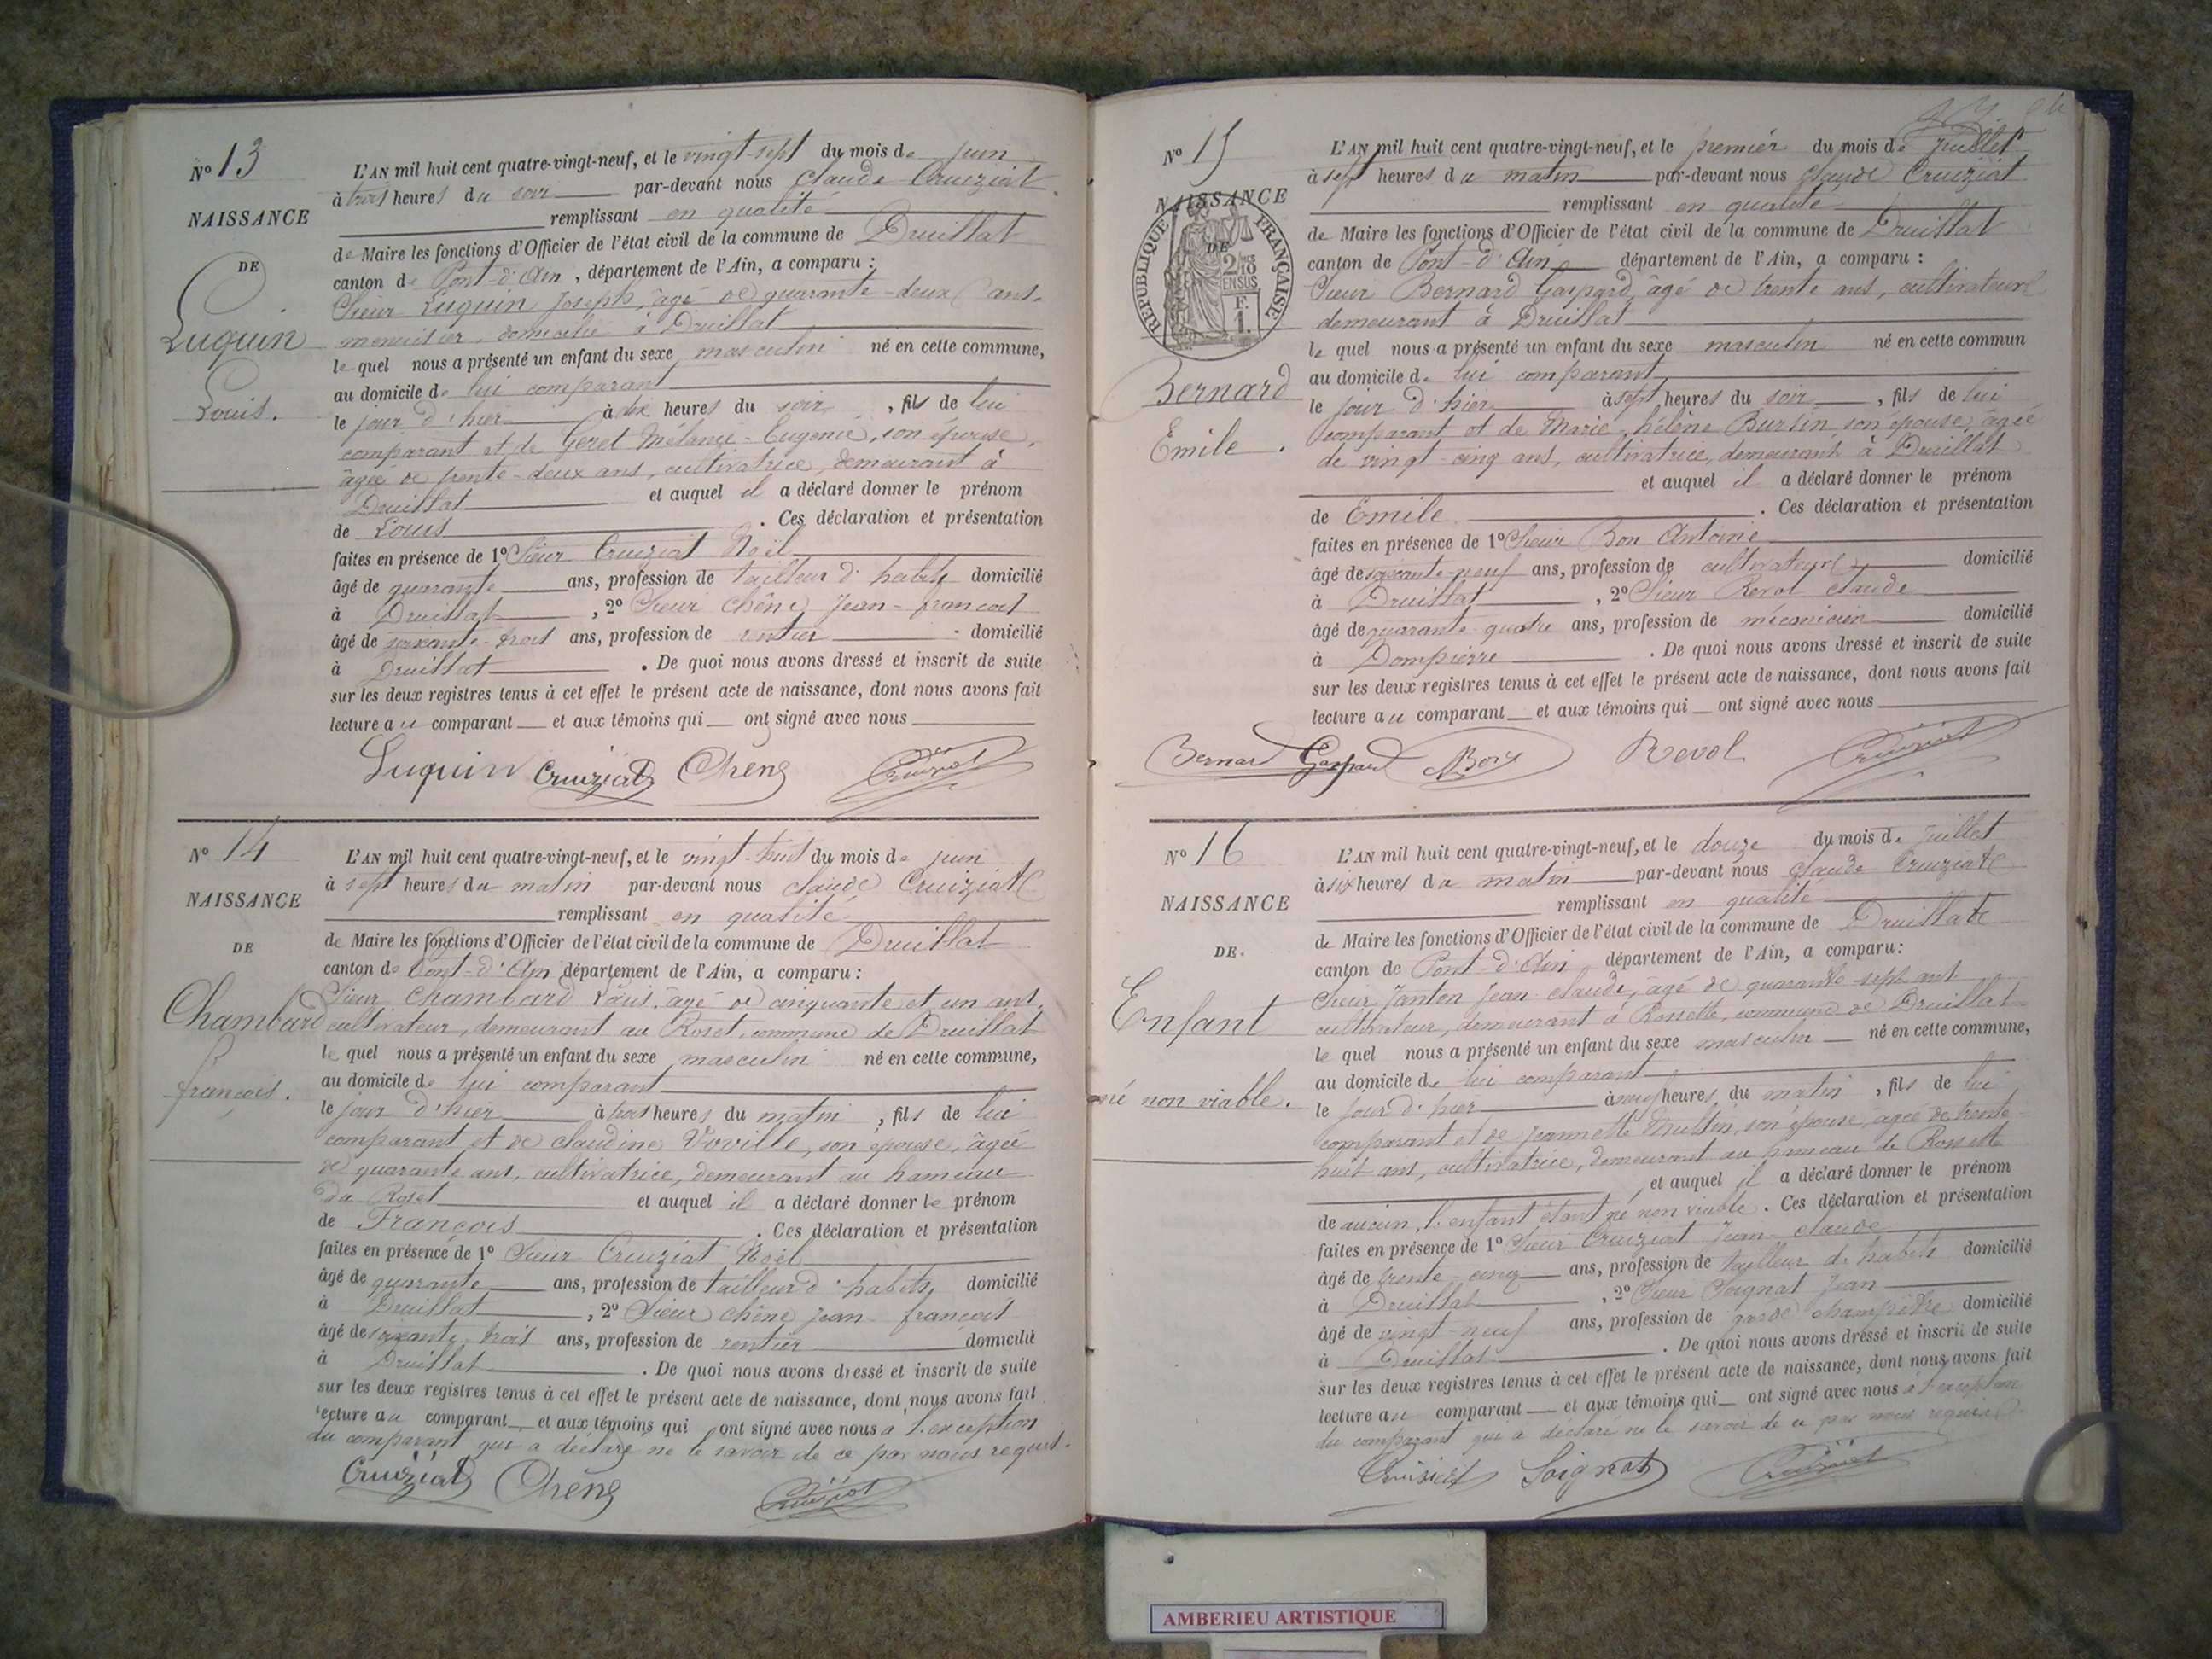 N° 13
NAISSANCE
DE
Luquin
Louis.
L'AN mil huit cent quatre-vingt-neuf, et le vingt-sept du mois de juin
à trois heures du soir par-devant nous Claude Cruiziat
remplissant en qualité
de Maire les fonctions d'Officier de l'état civil de la commune de Druillat
canton de Pont-d'Ain, département de l'Ain, a comparu :
Sieur Luquin Joseph, âgé de quarante-deux ans,
menuisier, domicilié à Druillat
le quel nous a présenté un enfant du sexe masculin né en cette commune,
au domicile de lui comparant
le jour d'hier à dix heures du soir, fils de lui
comparant et de Geret Mélanie-Eugénie, son épouse,
âgée de trente-deux ans, cultivatrice, demeurant à
Druillat et auquel il a déclaré donner le prénom
de Louis. Ces déclaration et présentation
faites en présence de 1° Sieur Cruiziat Noël
âgé de quarante ans, profession de tailleur d'habits domicilié
à Druillat, 2° Sieur Chêne Jean-françois
âgé de soixante-trois ans, profession de rentier domicilié
à Druillat. De quoi nous avons dressé et inscrit de suite
sur les deux registres tenus à cet effet le présent acte de naissance, dont nous avons fait
lecture au comparant et aux témoins qui ont signé avec nous
Luquin Cruiziat Chêne Cruiziat
N° 14
NAISSANCE
DE
Chambard
françois.
L'AN mil huit cent quatre-vingt-neuf, et le vingt-huit du mois de juin
à sept heures du matin par-devant nous Claude Cruiziat
remplissant en qualité
de Maire les fonctions d'Officier de l'état civil de la commune de Druillat
canton de Pont-d'Ain département de l'Ain, a comparu :
Sieur Chambard Louis, âgé de cinquante et un ans,
cultivateur, demeurant au Roset, commune de Druillat
le quel nous a présenté un enfant du sexe masculin né en cette commune,
au domicile de lui comparant
le jour d'hier à trois heures du matin, fils de lui
comparant et de Claudine Voville, son épouse, âgée
de quarante ans, cultivatrice, demeurant au hameau
du Roset et auquel il a déclaré donner le prénom
de François. Ces déclaration et présentation
faites en présence de 1° Sieur Cruiziat Noël
âgé de quarante ans, profession de tailleur d'habits, domicilié
à Druillat, 2° Sieur Chêne Jean-françois
âgé de soixante-trois ans, profession de rentier domicilié
à Druillat. De quoi nous avons dressé et inscrit de suite
sur les deux registres tenus à cet effet le présent acte de naissance, dont nous avons fait
lecture au comparant et aux témoins qui ont signé avec nous à l'exception
du comparant qui a déclaré ne le savoir de ce par nous requis.
Cruiziat Chêne Cruiziat
N° 15
NAISSANCE
DE
RÉPUBLIQUE FRANÇAISE
2/10 EN SUS
F. 1.
Bernard
Emile.
L'AN mil huit cent quatre-vingt-neuf, et le premier du mois de Juillet
à sept heures du matin par-devant nous Claude Cruiziat
remplissant en qualité
de Maire les fonctions d'Officier de l'état civil de la commune de Druillat
canton de Pont-d'Ain département de l'Ain, a comparu :
Sieur Bernard Gaspard, âgé de trente ans, cultivateur
demeurant à Druillat
le quel nous a présenté un enfant du sexe masculin né en cette commun
au domicile de lui comparant
le jour d'hier à sept heures du soir, fils de lui
comparant et de Marie-hélène Burtin son épouse, âgée
de vingt-cinq ans, cultivatrice, demeurant à Druillat
et auquel il a déclaré donner le prénom
de Emile. Ces déclaration et présentation
faites en présence de 1° Sieur Bon Antoine
âgé de soixante-neuf ans, profession de cultivateur domicilié
à Druillat, 2° Sieur Revol Claude
âgé de quarante-quatre ans, profession de mécanicien domicilié
à Dompierre. De quoi nous avons dressé et inscrit de suite
sur les deux registres tenus à cet effet le présent acte de naissance, dont nous avons fait
lecture au comparant et aux témoins qui ont signé avec nous
Bernard Gaspard Bon Revol Cruiziat
N° 16
NAISSANCE
DE
Enfant
né non viable.
L'AN mil huit cent quatre-vingt-neuf, et le douze du mois de Juillet
à six heures du matin par-devant nous Claude Cruiziat
remplissant en qualité
de Maire les fonctions d'Officier de l'état civil de la commune de Druillat
canton de Pont-d'Ain département de l'Ain, a comparu:
Sieur Janton Jean-Claude, âgé de quarante-sept ans
cultivateur, demeurant à Rossette, commune de Druillat
le quel nous a présenté un enfant du sexe masculin né en cette commune,
au domicile de lui comparant
le jour d'hier à neuf heures du matin, fils de lui
comparant et de Jeannette son épouse, âgée de trente
huit ans, cultivatrice, demeurant au hameau de Rossette
et auquel il a déclaré donner le prénom
de aucun, l'enfant étant né non viable. Ces déclaration et présentation
faites en présence de 1° Sieur Cruiziat Jean-Claude
âgé de trente-cinq ans, profession de tailleur de habits domicilié
à Druillat, 2° Sieur Soignat Jean
âgé de vingt-neuf ans, profession de garde champêtre domicilié
à Druillat. De quoi nous avons dressé et inscrit de suite
sur les deux registres tenus à cet effet le présent acte de naissance, dont nous avons fait
lecture au comparant et aux témoins qui ont signé avec nous à l'exception
du comparant qui a déclaré ne le savoir de ce par nous requis
Cruisiat Soignat Cruiziat
AMBERIEU ARTISTIQUE